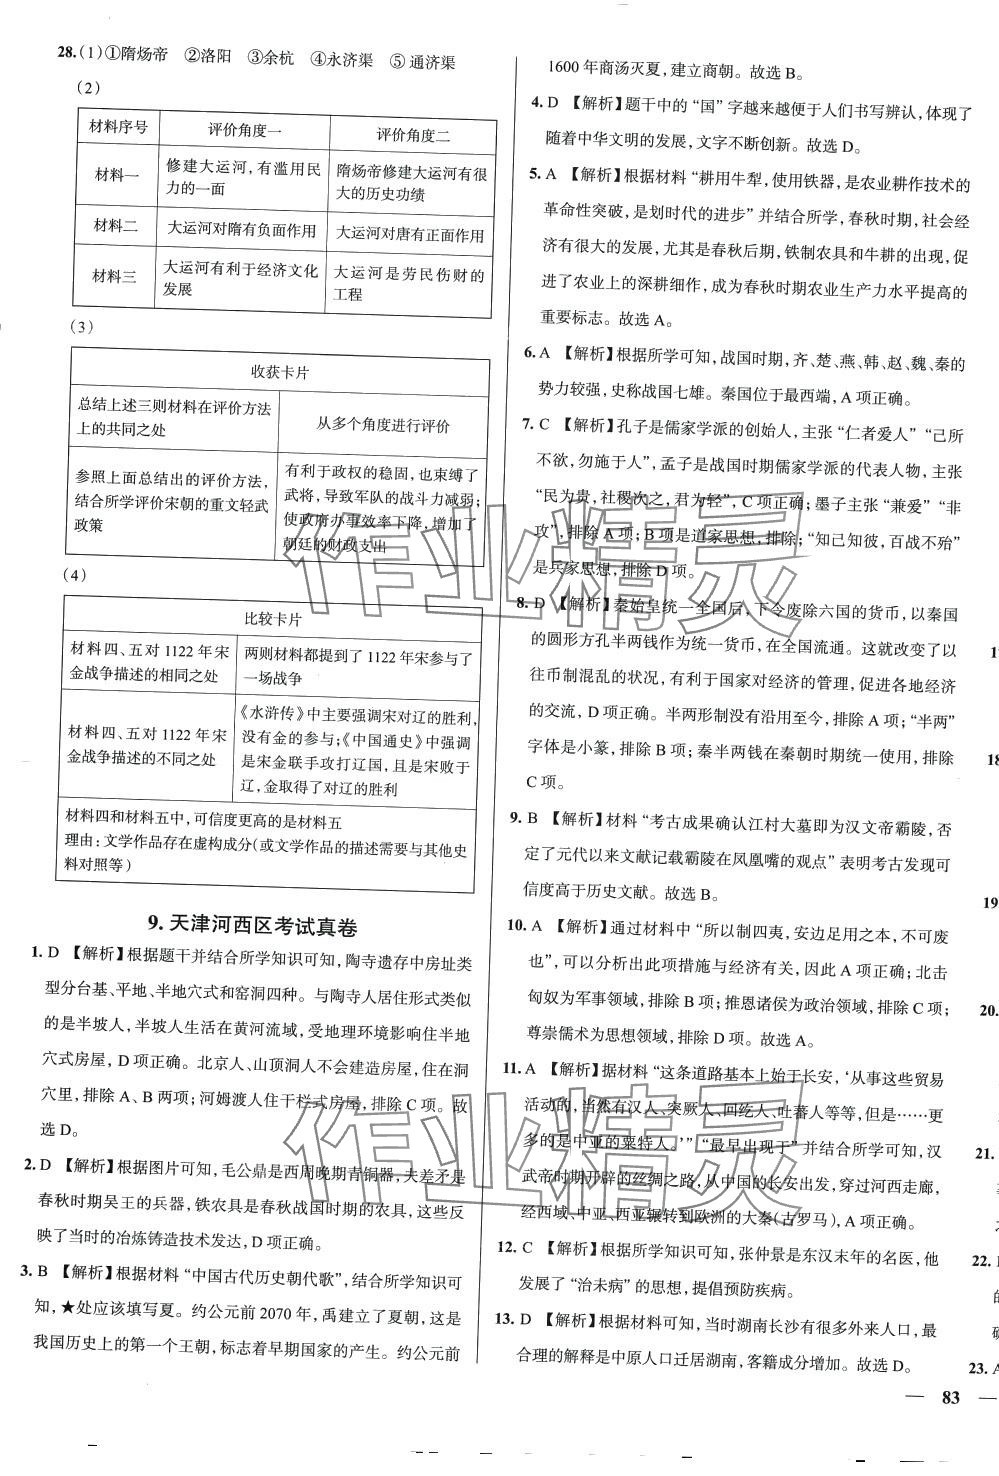 28.(1)①隋炀帝　②洛阳　③余杭　④永济渠　⑤通济渠
(2)
材料序号　评价角度一　评价角度二
材料一　修建大运河,有滥用民力的一面　隋炀帝修建大运河有很大的历史功绩
材料二　大运河对隋有负面作用　大运河对唐有正面作用
材料三　大运河有利于经济文化发展　大运河是劳民伤财的工程
(3)
收获卡片
总结上述三则材料在评价方法上的共同之处　从多个角度进行评价
参照上面总结出的评价方法,结合所学评价宋朝的重文轻武政策　有利于政权的稳固,也束缚了武将,导致军队的战斗力减弱;使政府办事效率下降,增加了朝廷的财政支出
(4)
比较卡片
材料四、五对1122年宋金战争描述的相同之处　两则材料都提到了1122年宋参与了一场战争
材料四、五对1122年宋金战争描述的不同之处　《水浒传》中主要强调宋对辽的胜利,没有金的参与;《中国通史》中强调是宋金联手攻打辽国,且是宋败于辽,金取得了对辽的胜利
材料四和材料五中,可信度更高的是材料五
理由:文学作品存在虚构成分(或文学作品的描述需要与其他史
料对照等)
9.天津河西区考试真卷
1.D 【解析】根据题干并结合所学知识可知,陶寺遗存中房址类
型分台基、平地、半地穴式和窑洞四种。与陶寺人居住形式类似
的是半坡人,半坡人生活在黄河流域,受地理环境影响住半地
穴式房屋,D项正确。北京人、山顶洞人不会建造房屋,住在洞
穴里,排除A、B两项;河姆渡人住干栏式房屋,排除C项。故
选D。
2.D 【解析】根据图片可知,毛公鼎是西周晚期青铜器,夫差矛是
春秋时期吴王的兵器,铁农具是春秋战国时期的农具,这些反
映了当时的冶炼铸造技术发达,D项正确。
3.B 【解析】根据材料“中国古代历史朝代歌”,结合所学知识可
知,★处应该填写夏。约公元前2070年,禹建立了夏朝,这是
我国历史上的第一个王朝,标志着早期国家的产生。约公元前
1600年商汤灭夏,建立商朝。故选B。
4.D 【解析】题干中的“国”字越来越便于人们书写辨认,体现了
随着中华文明的发展,文字不断创新。故选D。
5.A 【解析】根据材料“耕用牛犁,使用铁器,是农业耕作技术的
革命性突破,是划时代的进步”并结合所学,春秋时期,社会经
济有很大的发展,尤其是春秋后期,铁制农具和牛耕的出现,促
进了农业上的深耕细作,成为春秋时期农业生产力水平提高的
重要标志。故选A。
6.A 【解析】根据所学可知,战国时期,齐、楚、燕、韩、赵、魏、秦的
势力较强,史称战国七雄。秦国位于最西端,A项正确。
7.C 【解析】孔子是儒家学派的创始人,主张“仁者爱人”“己所
不欲,勿施于人”,孟子是战国时期儒家学派的代表人物,主张
“民为贵,社稷次之,君为轻”,C项正确;墨子主张“兼爱”“非
攻”,排除A项;B项是道家思想,排除;“知己知彼,百战不殆”
是兵家思想,排除D项。
8.D 【解析】秦始皇统一全国后,下令废除六国的货币,以秦国
的圆形方孔半两钱作为统一货币,在全国流通。这就改变了以
往币制混乱的状况,有利于国家对经济的管理,促进各地经济
的交流,D项正确。半两形制没有沿用至今,排除A项;“半两”
字体是小篆,排除B项;秦半两钱在秦朝时期统一使用,排除
C项。
9.B 【解析】材料“考古成果确认江村大墓即为汉文帝霸陵,否
定了元代以来文献记载霸陵在凤凰嘴的观点”表明考古发现可
信度高于历史文献。故选B。
10.A 【解析】通过材料中“所以制四夷,安边足用之本,不可废
也”,可以分析出此项措施与经济有关,因此A项正确;北击
匈奴为军事领域,排除B项;推恩诸侯为政治领域,排除C项;
尊崇儒术为思想领域,排除D项。故选A。
11.A 【解析】据材料“这条道路基本上始于长安,‘从事这些贸易
活动的,当然有汉人、突厥人、回纥人、吐蕃人等等,但是……更
多的是中亚的粟特人。’”“最早出现于”并结合所学可知,汉
武帝时期开辟的丝绸之路,从中国的长安出发,穿过河西走廊,
经西域、中亚、西亚辗转到欧洲的大秦(古罗马),A项正确。
12.C 【解析】根据所学知识可知,张仲景是东汉末年的名医,他
发展了“治未病”的思想,提倡预防疾病。
13.D 【解析】根据材料可知,当时湖南长沙有很多外来人口,最
合理的解释是中原人口迁居湖南,客籍成分增加。故选D。
18
19
20.
21.
22.
的
23.
— 83 —
作业精灵
作业精灵